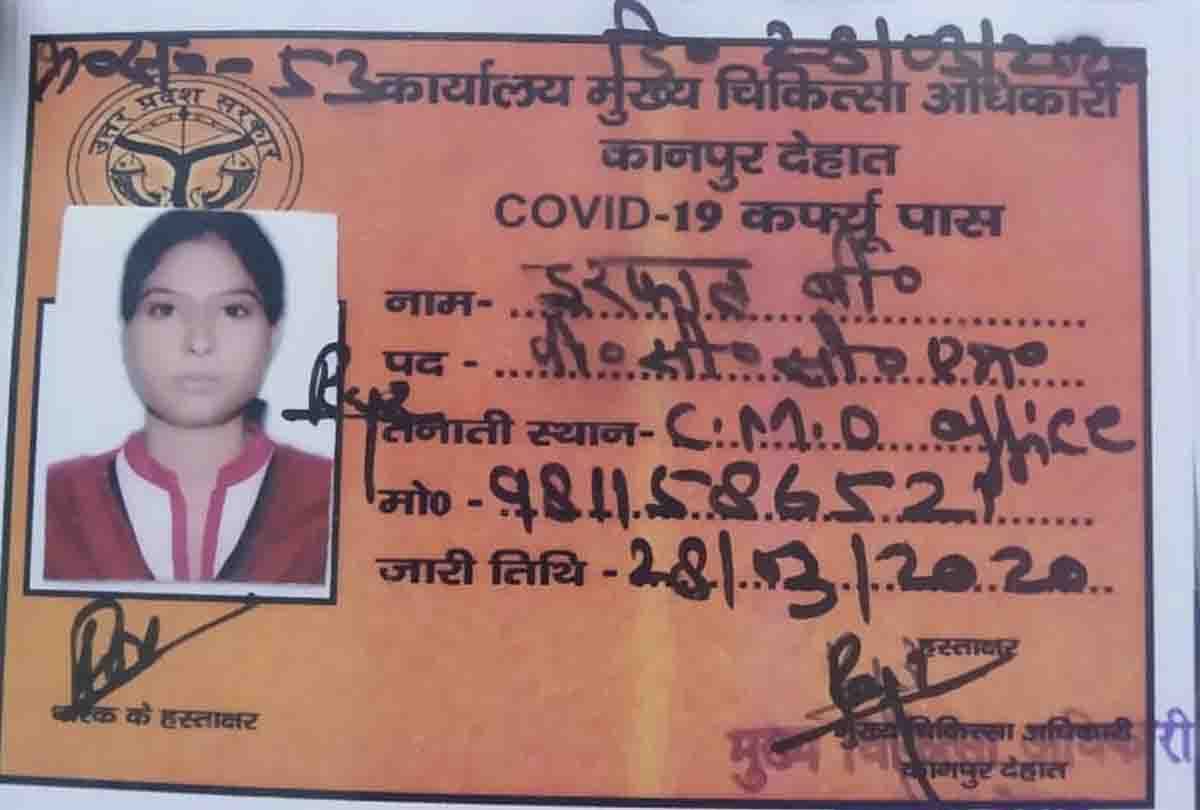 क्र०सं०-53 दि० 28/03/2020
उत्तर प्रदेश सरकार
कार्यालय मुख्य चिकित्सा अधिकारी
कानपुर देहात
COVID-19 कर्फ्यू पास
नाम- इरफाना बी०
पद - पी० सी० सी० एम०
तैनाती स्थान- C.M.O office
मो0 - 9811586521
जारी तिथि - 28/03/2020
हस्ताक्षर
धारक के हस्ताक्षर
मुख्य चिकित्सा अधिकारी
कानपुर देहात
मुख्य चिकित्सा अधिकारी